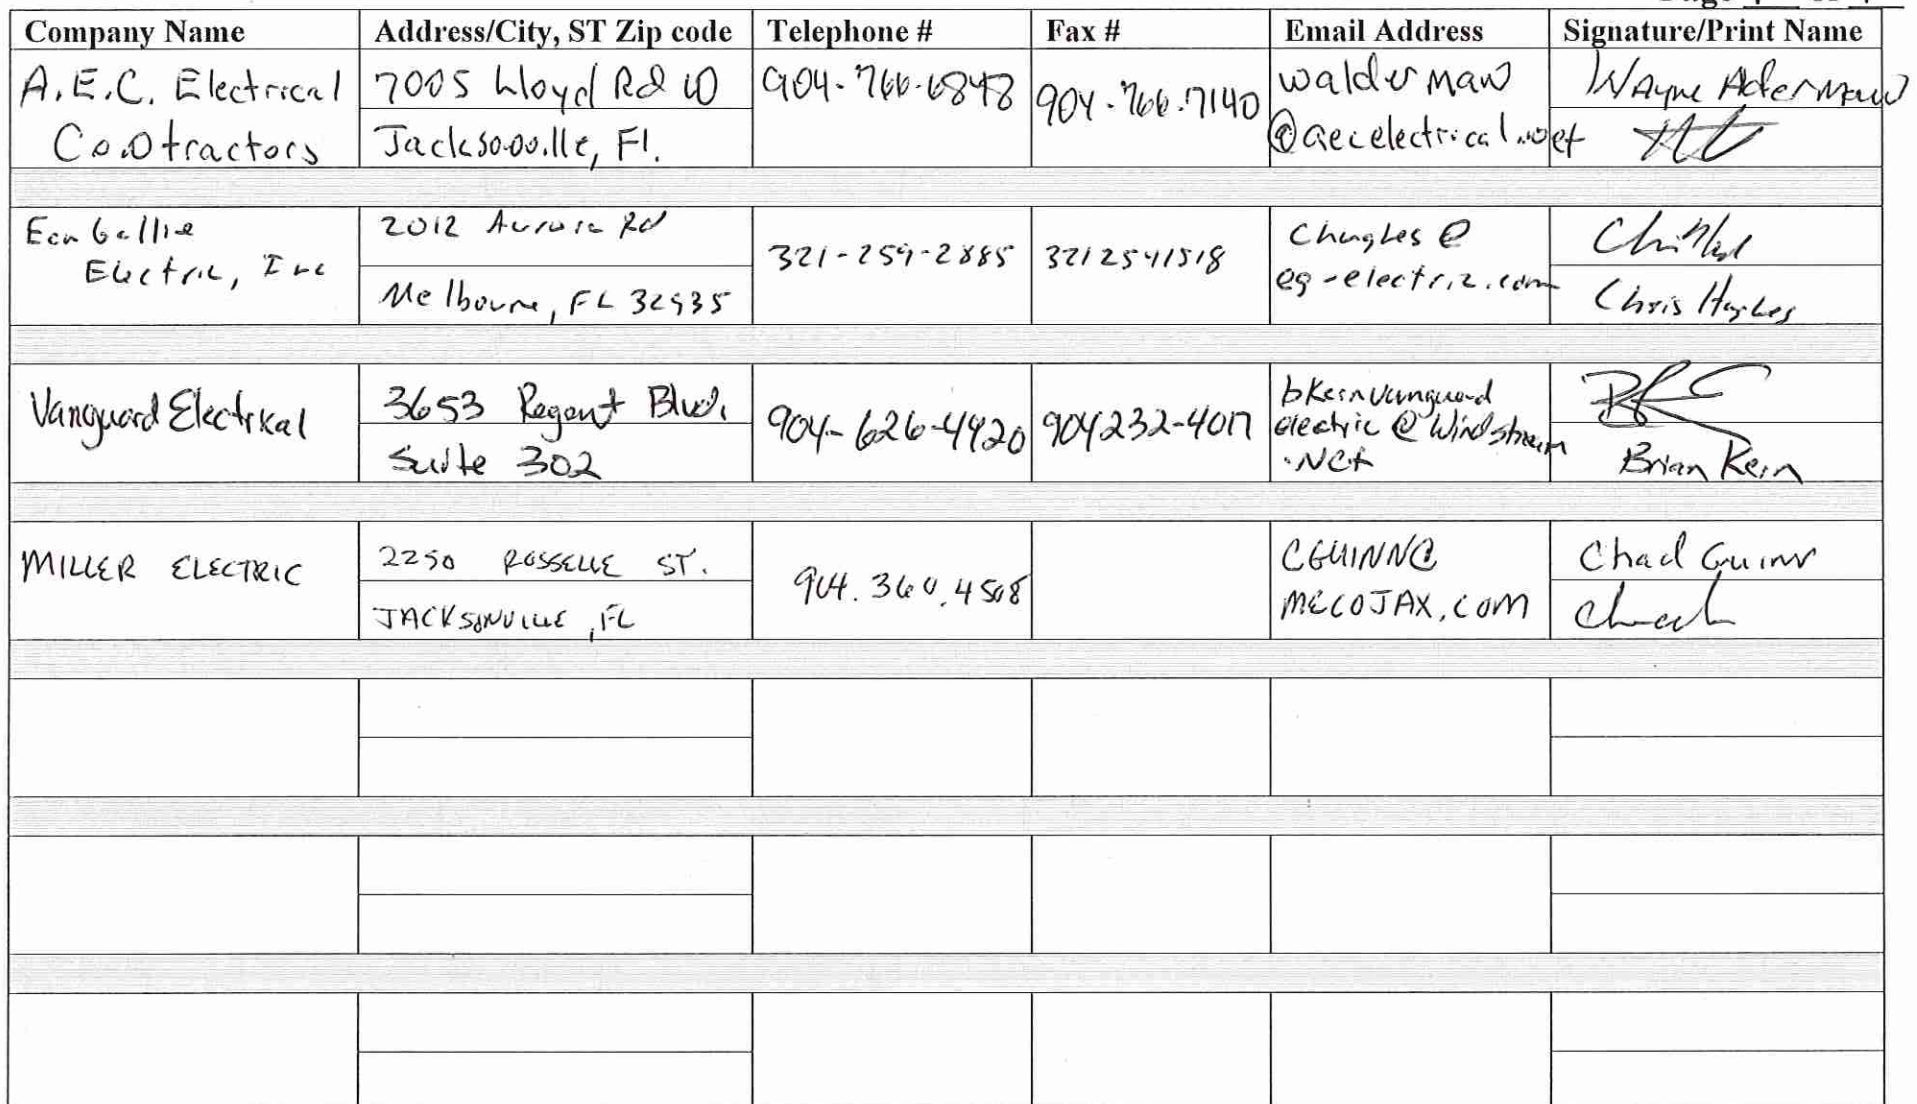 Company Name Address/City, ST Zip code Telephone # Fax # Email Address Signature/Print Name
A.E.C. Electrical
Contractors
7005 Lloyd Rd W
Jacksonville, Fl.
904-766-6848
904-766-7140
walderman
@aecelectrical.net
Wayne Alderman
Eau Gallie
Electric, Inc
2012 Aurora Rd
Melbourne, FL 32935
321-259-2885
3212541518
Chughes @
eg-electric.com
Chris Hughes
Vanguard Electrical
3653 Regent Blvd.
Suite 302
904-626-4420
904232-4017
bkernvanguard
electric @ Windstream
.Net
Brian Kern
MILLER ELECTRIC
2250 ROSSELLE ST.
JACKSONVILLE, FL
904.360.4508
CGUINN@
MECOJAX.COM
Chad Guinn